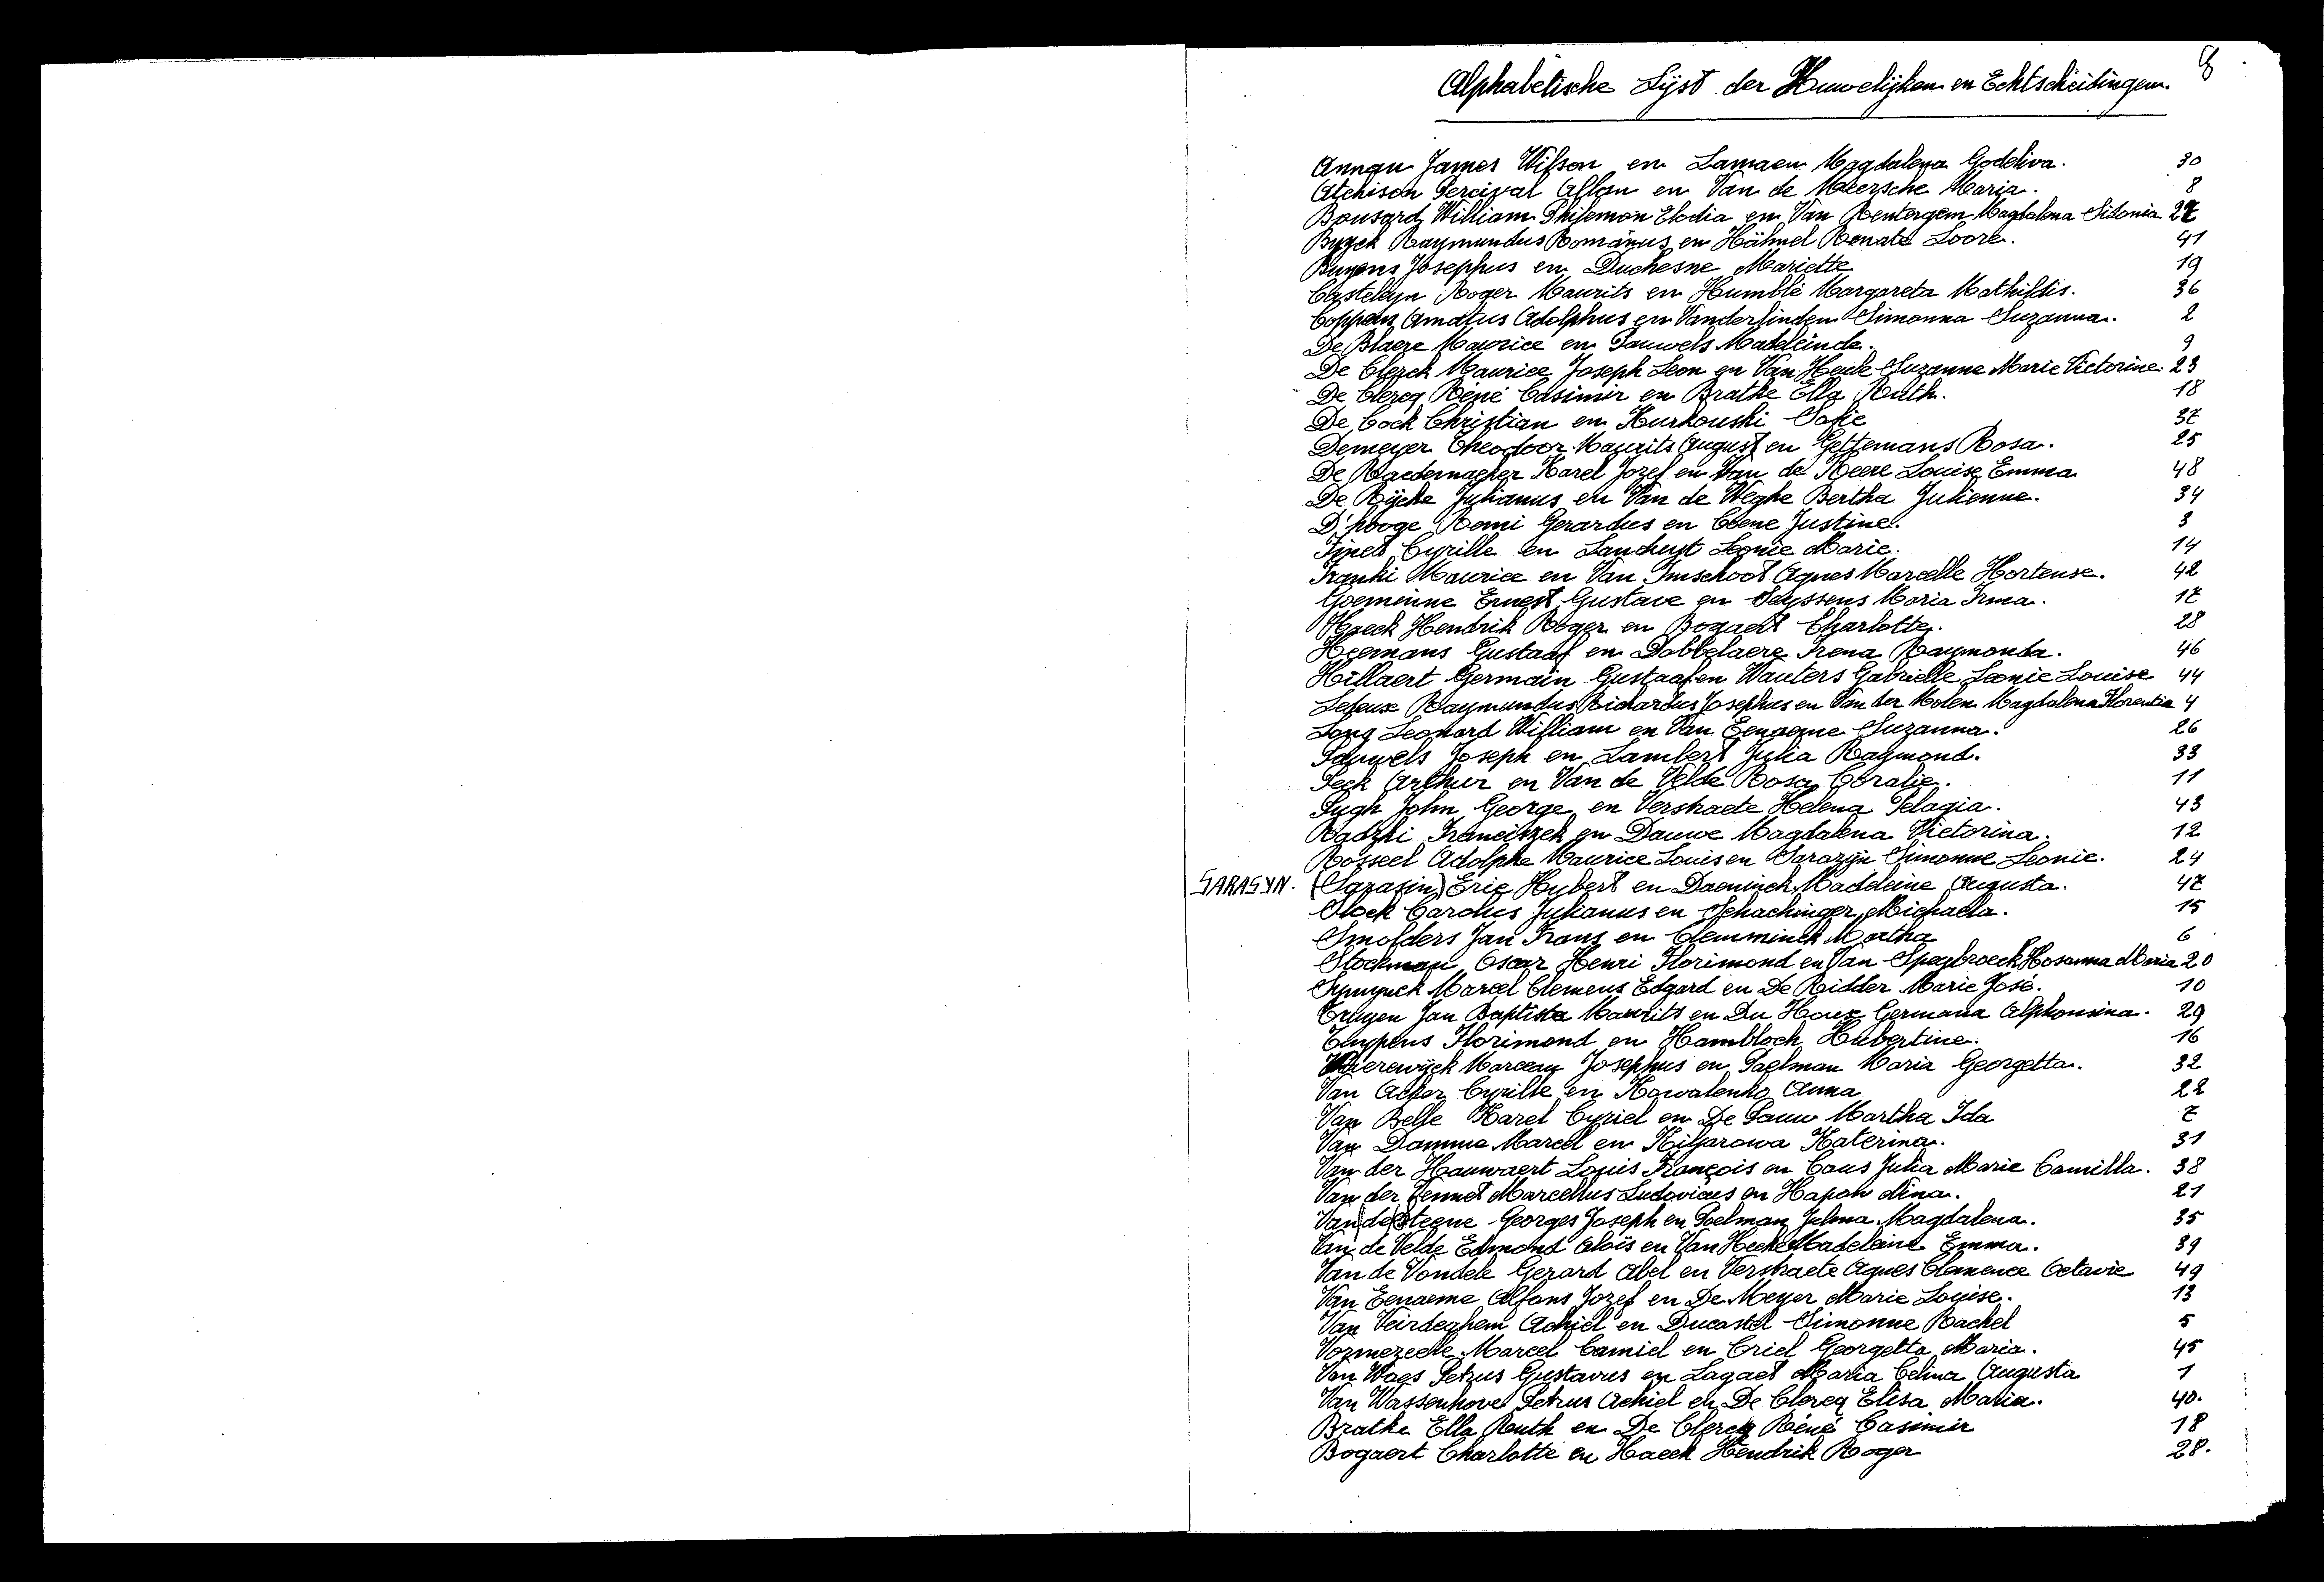 8
Alphabetische Lijst der Huwelijken en Echtscheidingen.
Annan James Wilson en Lamaen Magdalena Godeliva. 30
Atchison Percival Allan en Van de Meersche Maria. 8
Bousard William Philemon Elodia en Van Renterghem Magdalena Sidonia 27
Buyck Raymundus Romanus en Hähnel Renate Loore. 41
Buyens Josephus en Duchesne Mariette 19
Casteleyn Roger Maurits en Humblé Margareta Mathildis. 36
Coppens Amatus Adolphus en Vanderlinden Simonna Suzanna. 2
De Blaere Maurice en Pauwels Madeleinde. 9
De Clerck Maurice Joseph Leon en Van Hecke Suzanne Marie Victorine. 23
De Clercq Réné Casimir en Brathe Ella Ruth. 18
De Cock Christian en Kurkouski Sofie 37
Demeyer Theodoor Maurits August en Gettemans Rosa. 25
De Raedemaeker Karel Jozef en Van de Keere Louise Emma 48
De Rijcke Julianus en Van de Weghe Bertha Julienne. 34
D'hooge Remi Gerardus en Coene Justine. 3
Finet Cyrille en Lanchuyt Leonie Marie. 14
Franki Maurice en Van Imschoot Agnes Marcelle Hortense. 42
Goeminne Ernest Gustave en Seyssens Maria Irma. 17
Haeck Hendrik Roger en Bogaert Charlotte. 28
Heemans Gustaaf en Dobbelaere Irena Raymonda. 46
Hillaert Germain Gustaaf en Wauters Gabrielle Leonie Louise 44
Ledeux Raymundus Richardus Josephus en Van der Molen Magdalena Florentia 4
Long Leonard William en Van Eenaeme Suzanna. 26
Pauwels Joseph en Lambert Julia Raymond. 33
Peck Arthur en Van de Velde Rosa Coralie. 11
Pugh John George en Verstraete Helena Pelagia. 43
Radzki Franciszek en Dauwe Magdalena Victorina. 12
Rosseel Adolphe Maurice Louis en Sarazijn Simonne Leonie. 24
SARASYN. (Sarasin) Eric Hubert en Daeninck Madeleine Augusta. 47
Slock Carolus Julianus en Schachinger Michaela. 15
Smolders Jan Frans en Clemminck Martha 6
Stockman Oscar Henri Florimond en Van Speybroeck Hosanna Maria 20
Synnynck Marcel Clemens Edgard en De Ridder Marie José. 10
Trayen Jan Baptista Maurits en Du Houx Germana Alphonsina. 29
Tuypens Florimond en Hambloch Hubertine. 16
Vierewijck Marceau Josephus en Paelman Maria Georgetta. 32
Van Acker Cyrille en Kowalenko Anna 22
Van Belle Karel Cyriel en De Pauw Martha Ida 7
Van Damme Marcel en Kiljarowa Katerina. 31
Van der Hauwaert Louis François en Caus Julia Marie Camilla. 38
Van der Vennet Marcellus Ludovicus en Hapon Nina. 21
Van de Steene Georges Joseph en Poelman Jelma Magdalena. 35
Van de Velde Edmond Aloïs en Van Hecke Madeleine Emma. 39
Van de Vondele Gerard Abel en Verstraete Agnes Clemence Octavie 49
Van Eenaeme Alfons Jozef en De Meyer Marie Louise. 13
Van Veirdeghem Achiel en Ducastel Simonne Rachel 5
Vormezeele Marcel Camiel en Criel Georgetta Maria. 45
Van Waes Petrus Gustavus en Lagaet Maria Celina Augusta 1
Van Wassenhove Petrus Achiel en De Clercq Elisa Maria. 40.
Brathe Ella Ruth en De Clercq Réné Casimir 18
Bogaert Charlotte en Haeck Hendrik Roger 28.